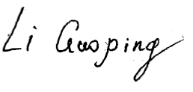 Li Guoping